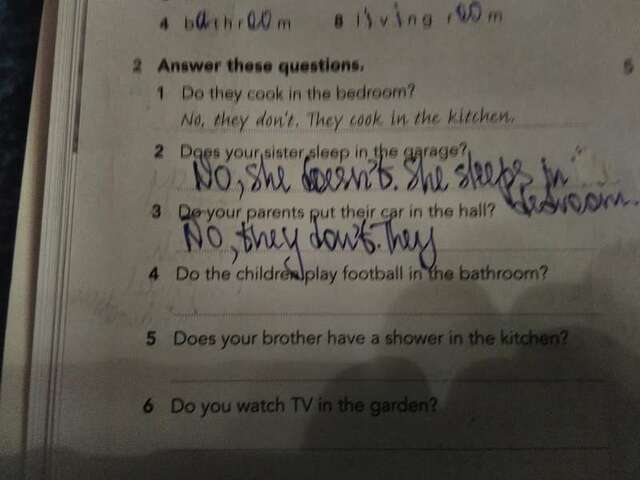 4 bathroom 8 living room
2 Answer these questions. 5
1 Do they cook in the bedroom?
No, they don't. They cook in the kitchen.
2 Does your sister sleep in the garage?
No, she doesn't. She sleeps in
bedroom.
3 Do your parents put their car in the hall?
No, they don't. They
4 Do the children play football in the bathroom?
5 Does your brother have a shower in the kitchen?
6 Do you watch TV in the garden?